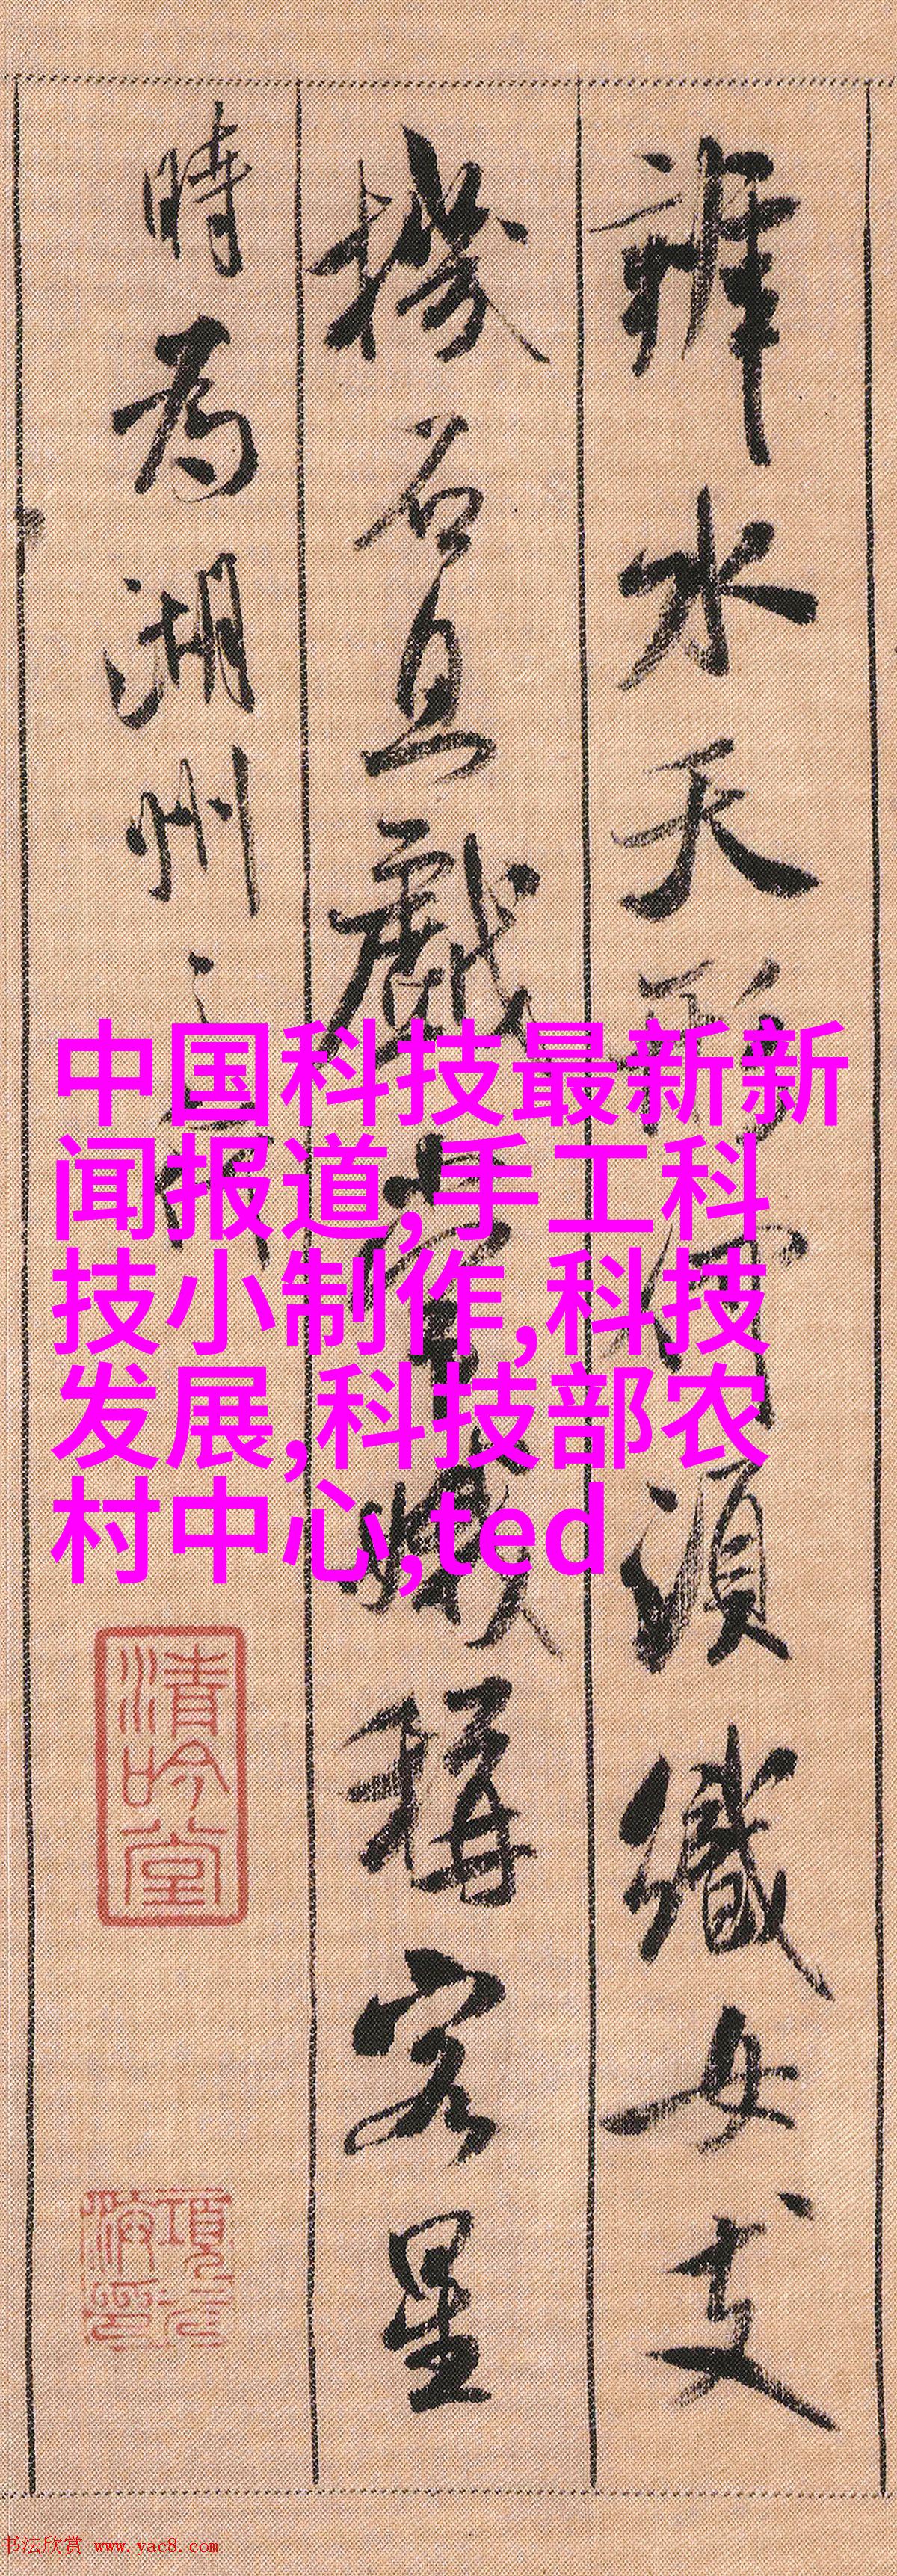 辨水天形何須織女支
機石且戲常娥稱客星
時為湖州之行
中国科技最新新
闻报道,手工科
技小制作,科技
发展,科技部农
村中心,ted
清吟堂
书法欣赏 www.yac8.com